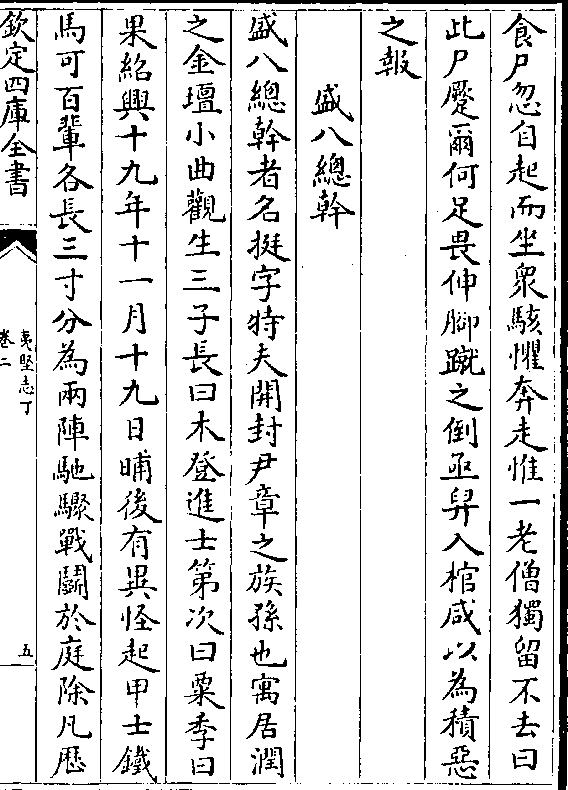 食尸忽自起而坐衆駭懼奔走惟一老僧獨留不去曰
此尸蹷爾何足畏伸腳蹴之倒亟舁入棺咸以為積惡
之報
盛八總幹
盛八總幹者名挺字特夫開封尹章之族孫也寓居潤
之金壇小曲觀生三子長曰木登進士第次曰粟季曰
果紹興十九年十一月十九日晡後有異怪起甲士鐵
馬可百輩各長三寸分為兩陣馳驟戰鬭於庭除凡歷
欽定四庫全書
夷堅志丁
卷二
五